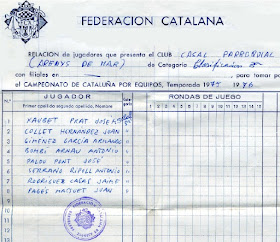 FEDERACION CATALANA
RELACION de jugadores que presenta el CLUB CASAL PARROQUIAL
(ARENYS DE MAR) de Categoría Clasificación
con filiales en para tomar par
el CAMPEONATO DE CATALUÑA POR EQUIPOS, Temporada 1975 1976
N.º JUGADOR RONDAS DE JUEGO
Primer apellido segundo apellido, Nombre 1 2 3 4 5 6 7 8 9 10 11 12
1 FAUGET PRAT JOSÉ
2 COLLET HERNÁNDEZ JUAN
3 GIMÉNEZ GARCÍA ARMANDO
4 ROMERI ARNAU ANTONIO
5 PALOU PENT JOSÉ
6 SERRANO RIPOLL ANTONIO
7 RODRIGUEZ CASAS JAIME
8 PAGÈS MAGUET JUAN
9
10